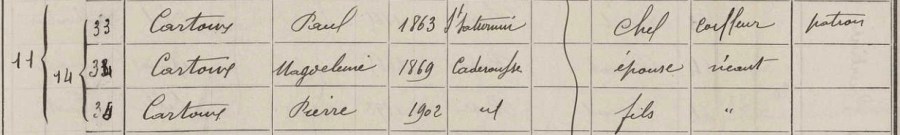 11 14 33 Cartoux Paul 1863 St Saturnin Chef coiffeur patron
34 Cartoux Magdeleine 1869 Caderousse épouse néant
35 Cartoux Pierre 1902 id fils "